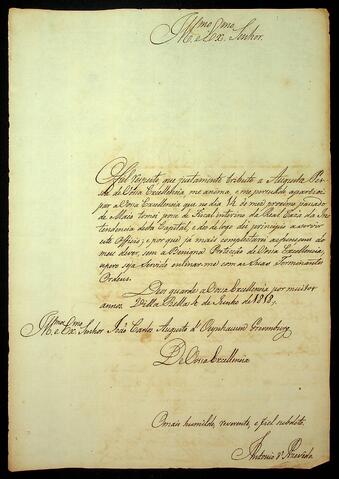 Illmo. e Ex.mo Senhor.
O fiel respeito, que justamente tributo a Augusta Pes-
soa de Vossa Excellencia, me anima, e me persuade a partici-
par a Vossa Excellencia que no dia 14 do mez proximo passado
de Maio tomei posse de Fiscal interino da Real Caza da In-
tendencia desta Capital, e desde logo dei principio a servir
este Officio; e por que já mais completarei as funçoens do
meu dever, sem a Benigna Protecção de Vossa Excellencia,
espero seja Servido enlinar-me com as Suas Terminantes
Ordens.
Deos guarde a Vossa Excellencia por muitos
annos. Villa Bella 4 de Junho de 1818.
Illmo. e Exmo. Senhor João Carlos Augusto d'Oeynhausen Gravenburg.
De Vossa Excellencia
O mais humilde, reverente, e fiel subdito.
Antonio d' Azevedo